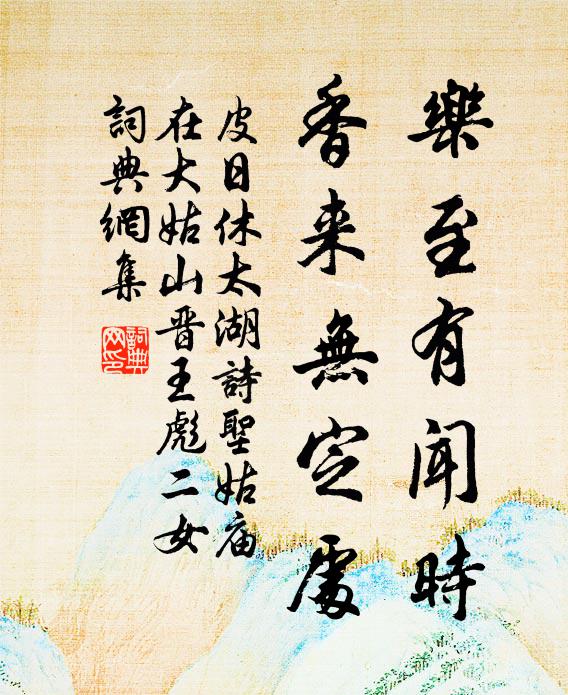 樂至有聞時
香来無定處
皮日休太湖詩聖姑庙
在大姑山晋王彪二女
詞典網集
詞典
网印